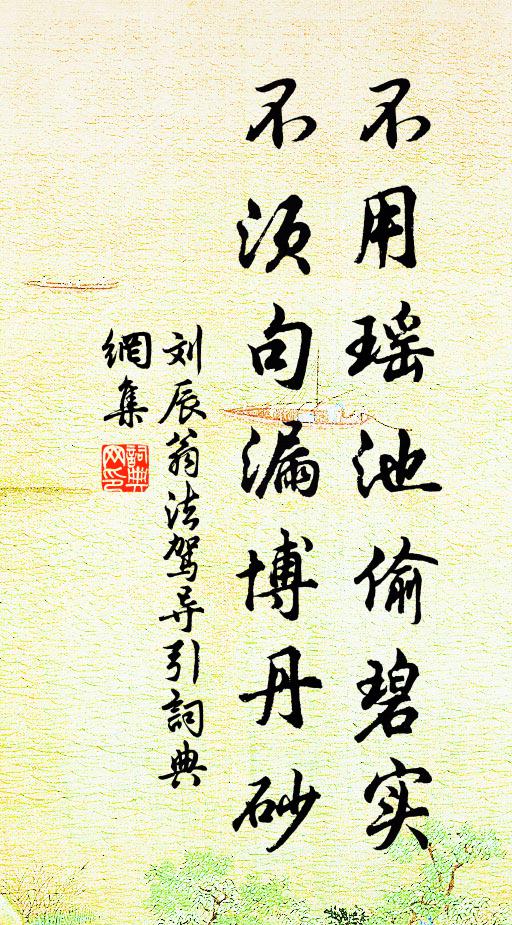 不用瑶池偷碧实
不须句漏博丹砂
刘辰翁法驾导引詞典
網集
詞典
网印